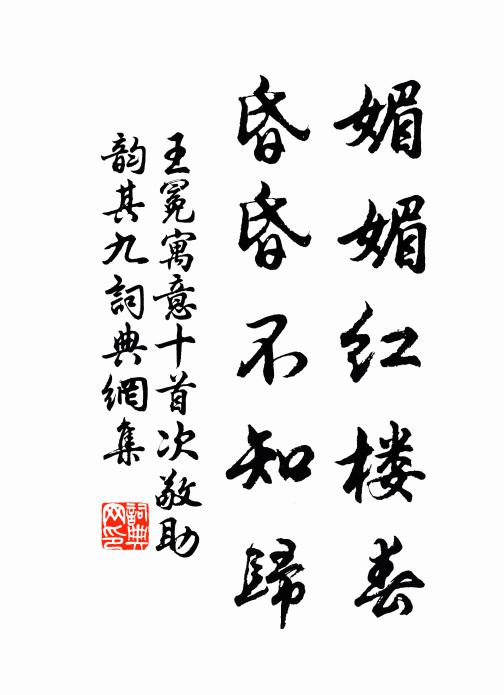 媚媚红楼春
昏昏不知歸
王冕寓意十首次敬助
韵其九詞典網集
詞典
网印